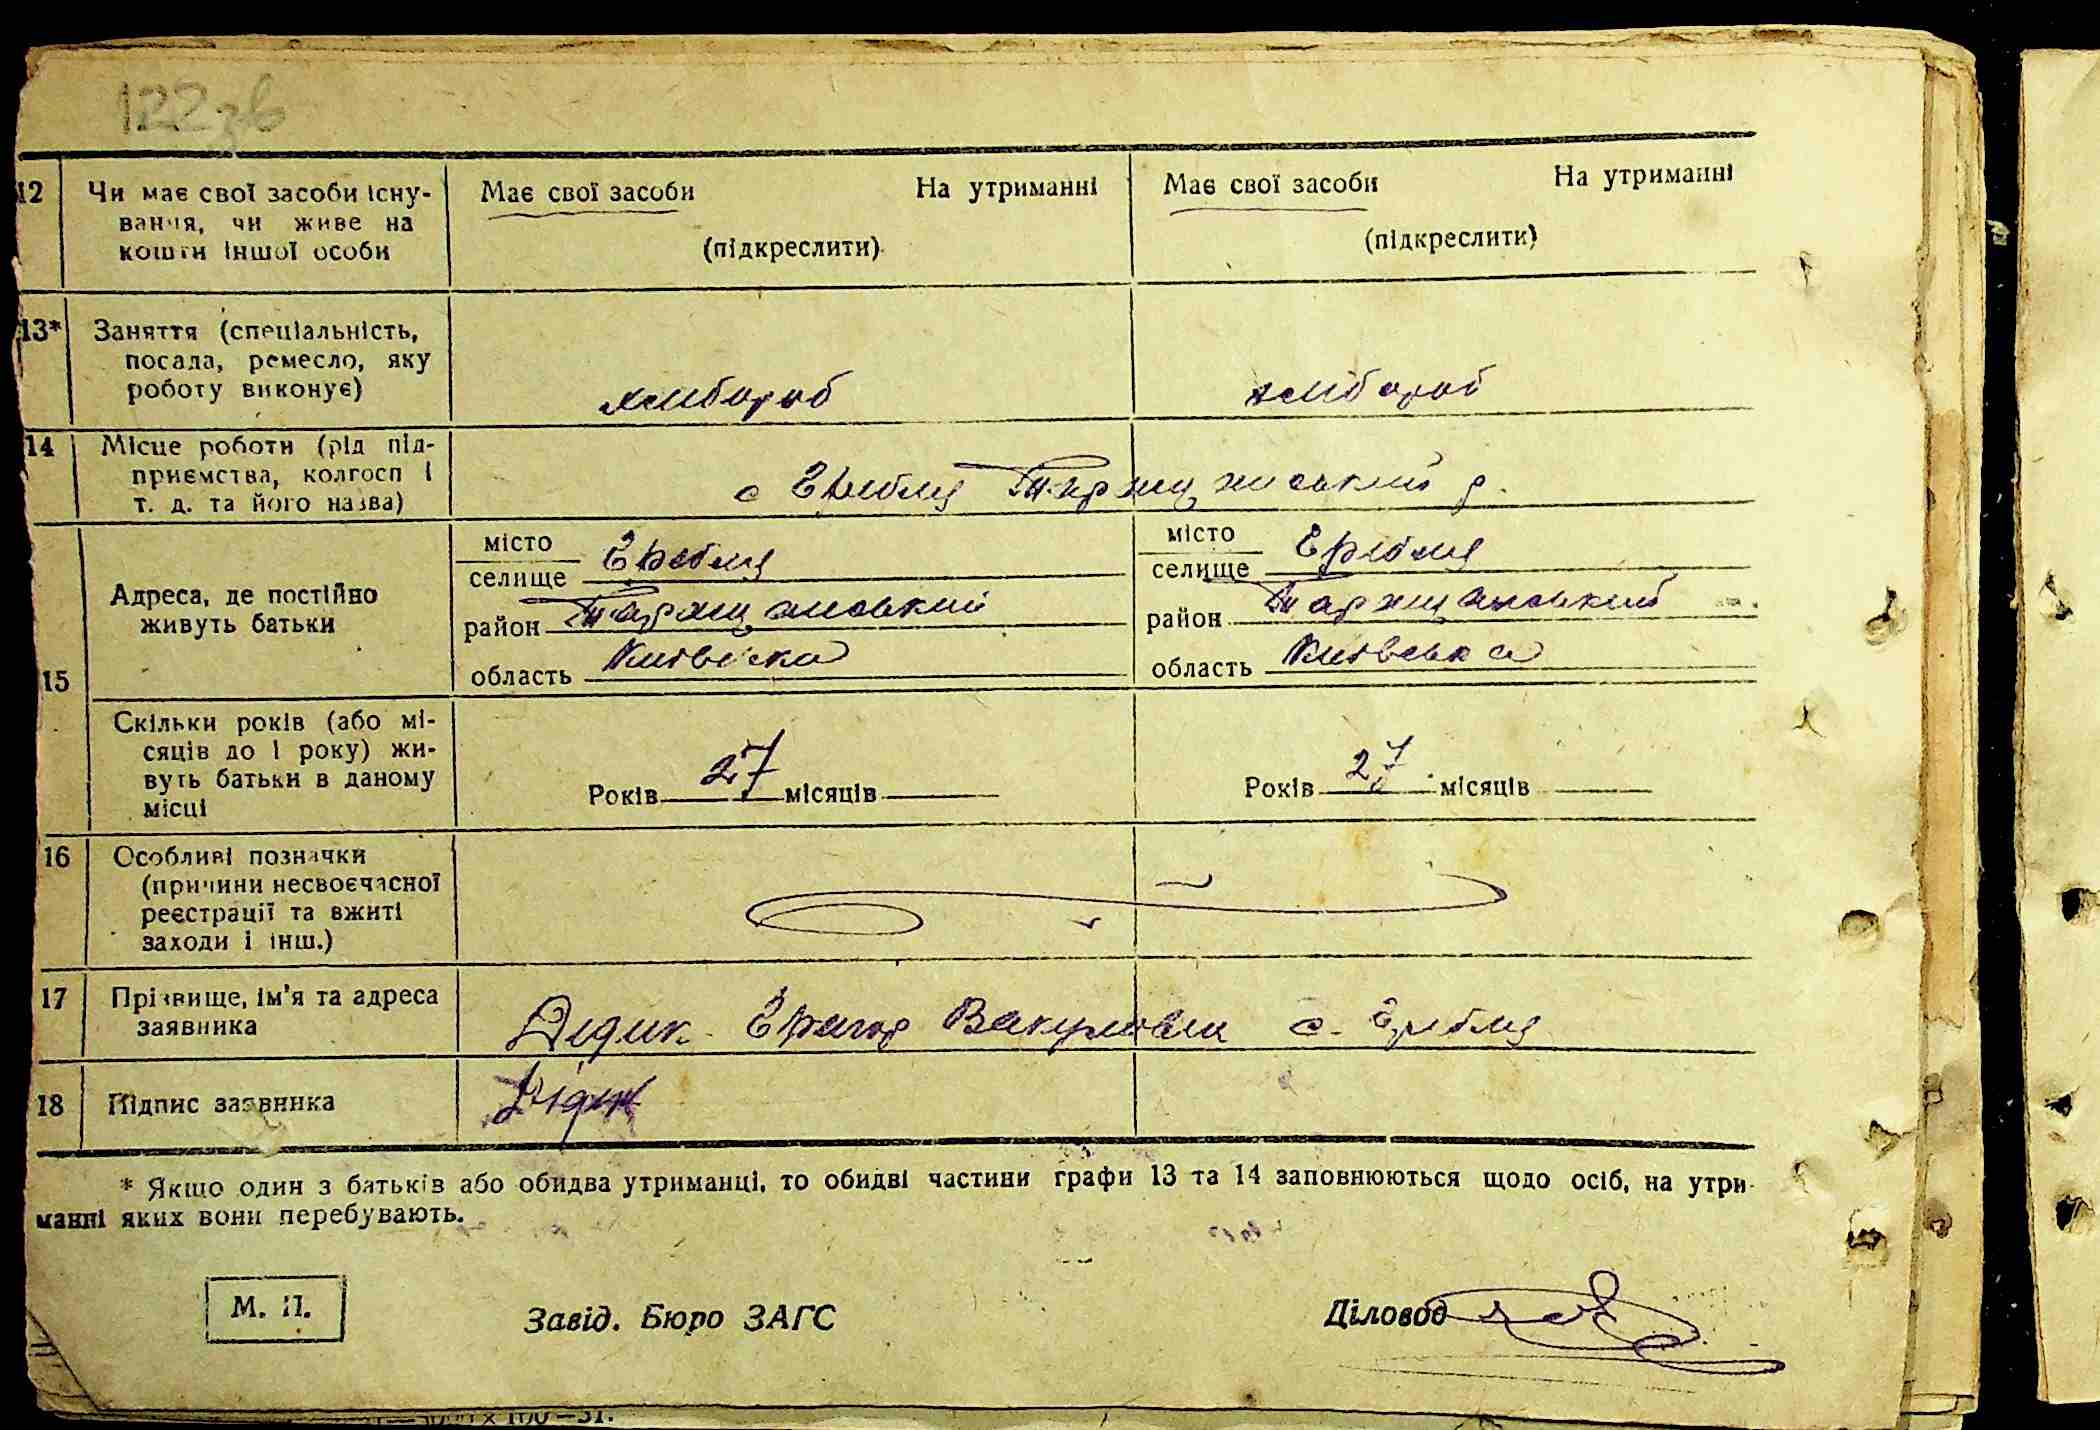 122зв
12 Чи має свої засоби існу- Має свої засоби На утриманні Має свої засоби На утриманні
вання, чи живе на
кошти іншої особи (підкреслити) (підкреслити)
13* Заняття (спеціальність,
посада, ремесло, яку
роботу виконує) хлібороб хлібороб
14 Місце роботи (рід під-
приємства, колгосп і с Гребля Таращанський р.
т. д. та його назва)
15 Адреса, де постійно
живуть батьки
місто Гребля місто Гребля
селище селище
район Таращанський район Таращанський
область Київська область Київська
Скільки років (або мі-
сяців до 1 року) жи-
вуть батьки в даному Років 27 місяців Років 27 місяців
місці
16 Особливі позначки
(причини несвоєчасної
реєстрації та вжиті
заходи і інш.)
17 Прізвище, ім'я та адреса
заявника Дідик Григор Вакулович с. Гребля
18 Підпис заявника Дідик
* Якщо один з батьків або обидва утриманці, то обидві частини графи 13 та 14 заповнюються щодо осіб, на утри-
манні яких вони перебувають.
М. П. Завід. Бюро ЗАГС Діловод